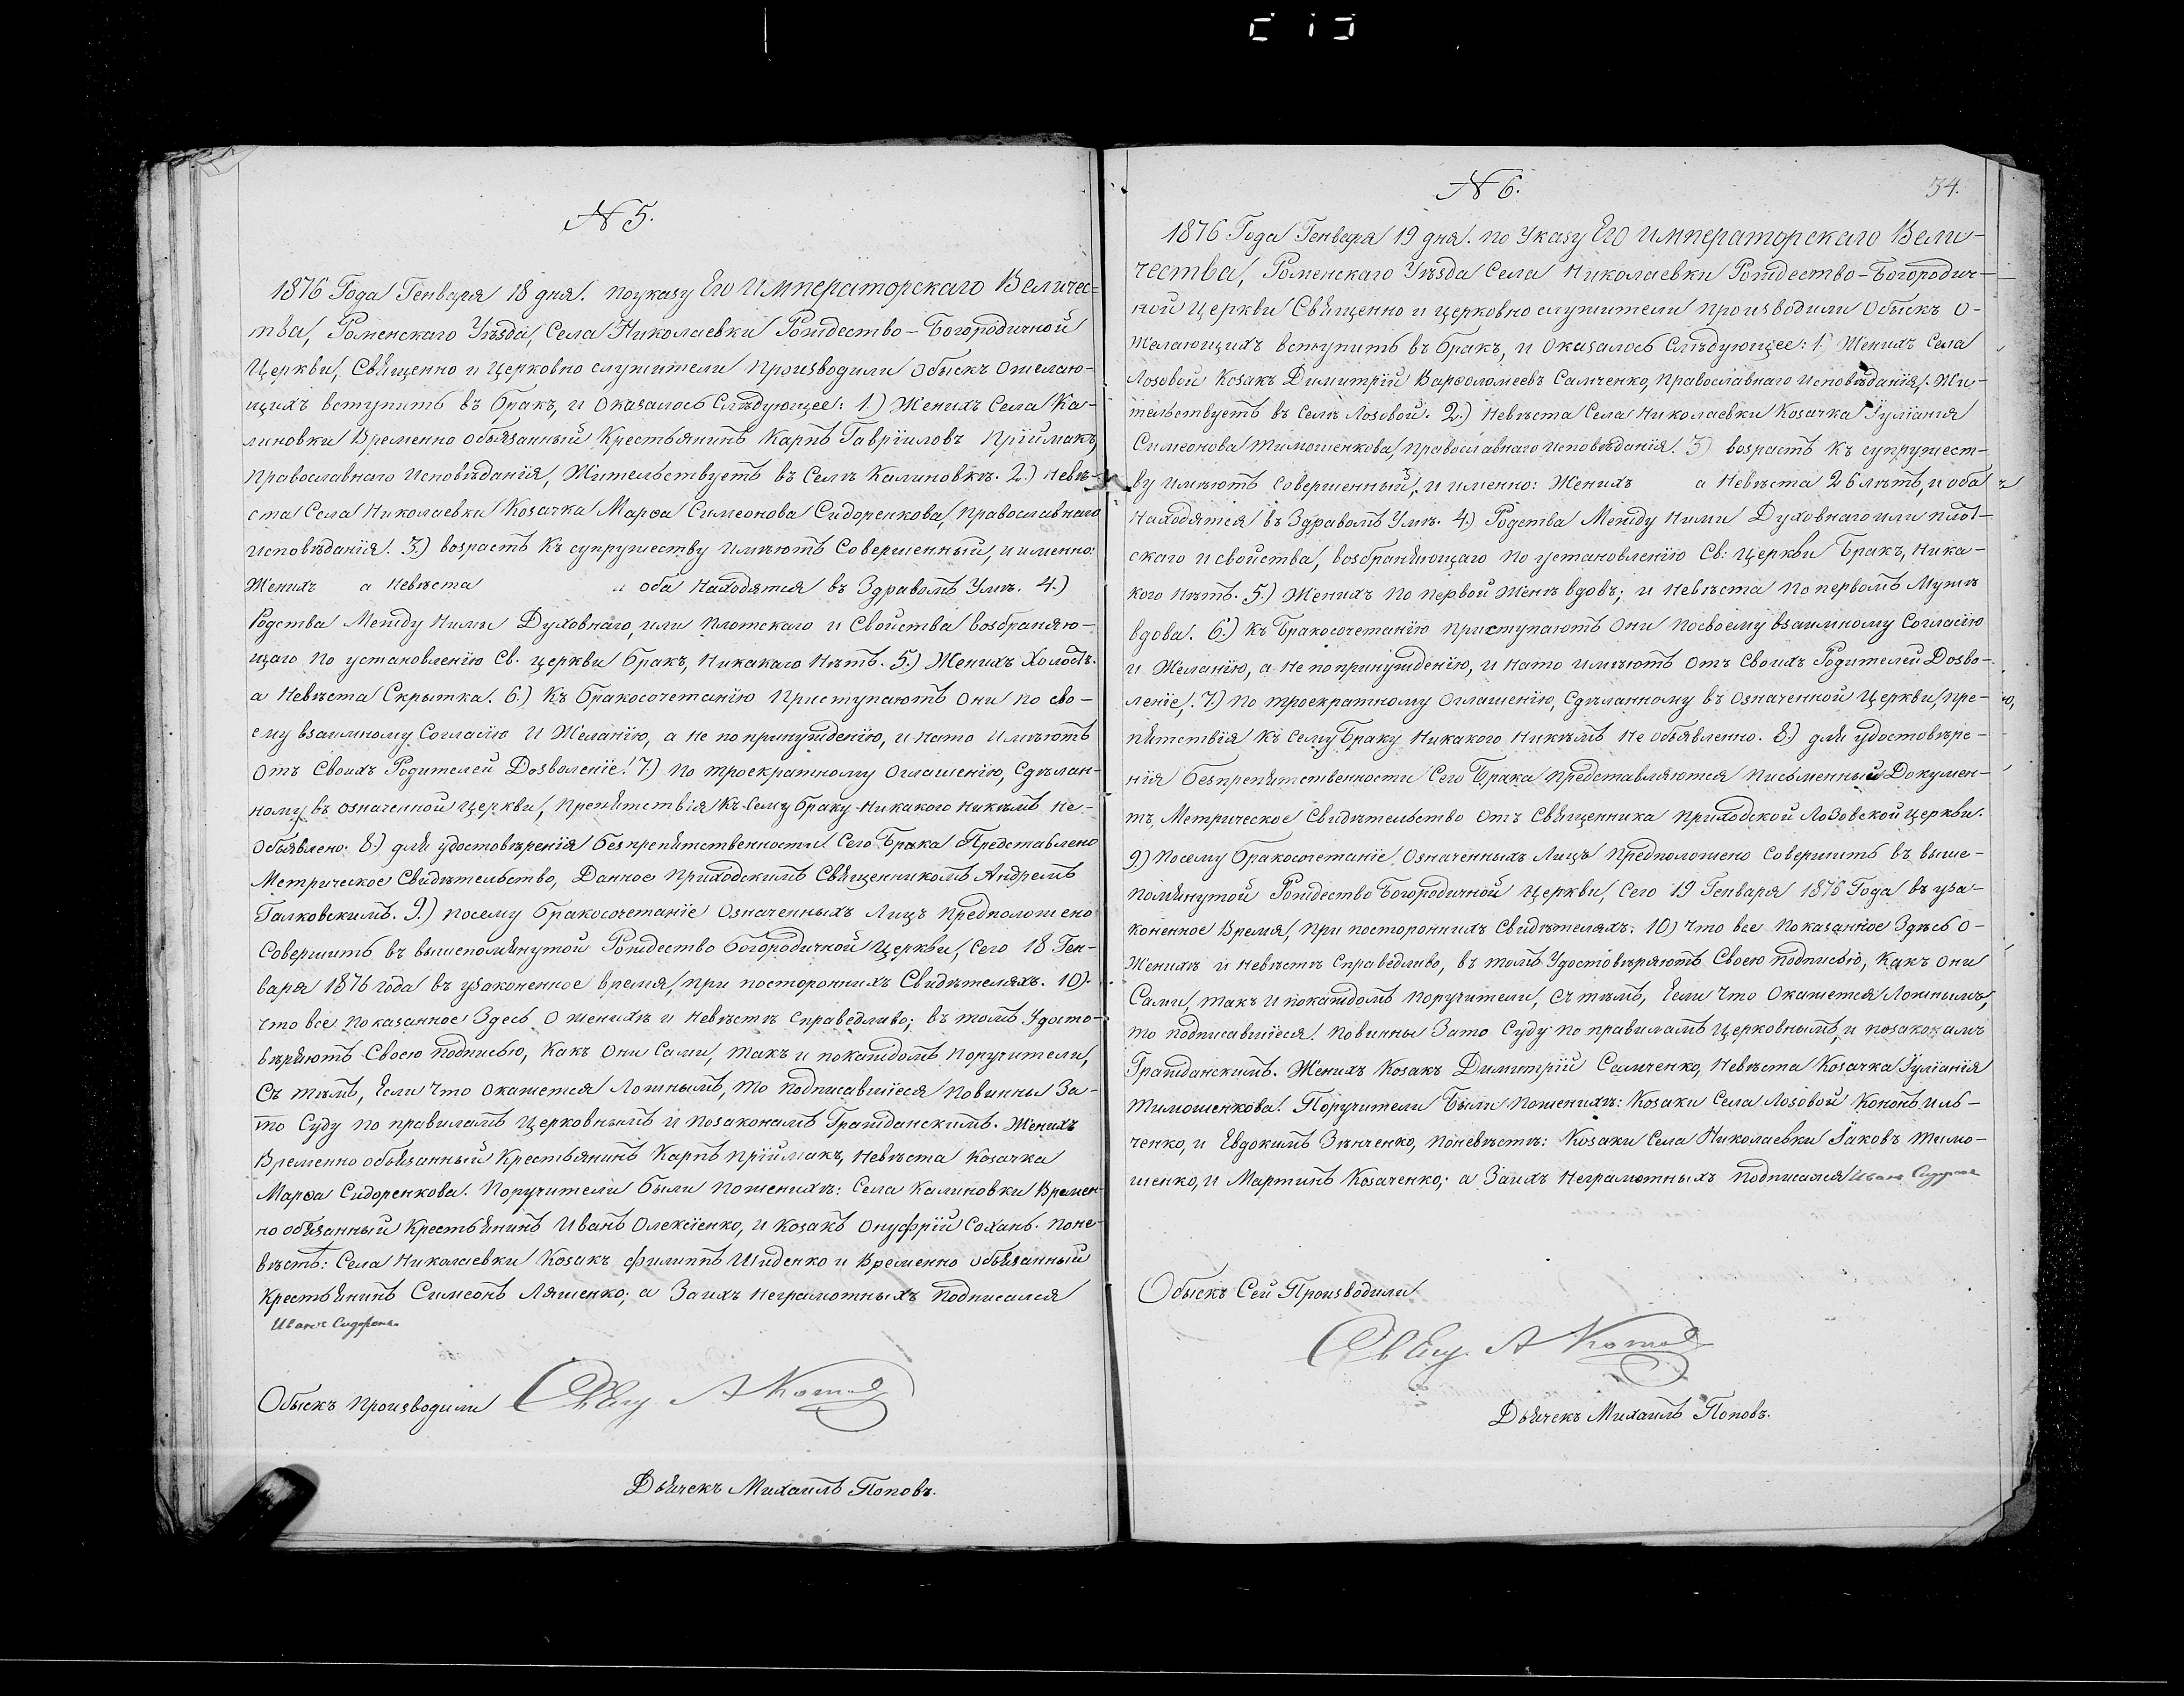 N 5.
1876 Года Генваря 18 дня. по указу Его Императорскаго Величес=
тва, Роменскаго Уѣзда, Села Николаевки Рождество-Богородичной
Церкви, Священно и Церковно служители производили обыскъ о желаю-
щихъ вступить въ бракъ, и оказалось слѣдующее: 1.) Женихъ Села Ка-
линовки Временно обязанный Крестьянинъ Карпъ Гавріиловъ Пріймакъ,
Православнаго Исповѣданія, Жительствуетъ въ Селѣ Калиновкѣ. 2.) Невѣ-
ста Села Николаевки Козачка Марѳа Симеонова Сидоренкова, Православнаго
исповѣданія. 3.) возрастъ къ супружеству имѣютъ Совершенный, и именно:
Женихъ а Невѣста и оба Находятся въ Здравомъ Умѣ. 4.)
Родства Между Ними Духовнаго, или плотскаго и Свойства возбраняю-
щаго по установленію Св. церкви бракъ, Никакаго Нѣтъ. 5.) Женихъ Холостъ.
а Невѣста Скрытка. 6.) Къ бракосочетанію Приступаютъ Они по сво-
ему взаимному Согласію И Желанію, а не по принужденію, и на то имѣютъ
Отъ Своихъ Родителей Дозволеніе! 7.) по троекратному Оглашенію, Сдѣлан-
ному въ означенной церкви, препятствія къ Сему браку Никакого Никѣмъ не-
Объявлено. 8.) для удостовѣренія безпрепятственности Сего Брака Представлено
Метрическое Свидѣтельство, Данное Приходскимъ Священникомъ Андреемъ
Галковскимъ. 9.) посему бракосочетаніе Означенныхъ Лицъ Предположено
Совершить въ вышепомянутой Рождество богородичной Церкви, Сего 18 Ген-
варя 1876 года въ узаконенное время, при постороннихъ Свидѣтеляхъ. 10).
Что все показанное Здесь О женихѣ и Невѣстѣ Справедливо; въ томъ Удосто-
вѣряютъ Своею подписью, Какъ Они Сами, такъ и по каждомъ поручители,
Съ тѣмъ, Если Что окажется Ложнымъ, то подписавшіеся повинны За-
то Суду по правиламъ Церковнымъ и по законамъ Гражданскимъ. Женихъ
Временно обязанный Крестьянинъ Карпъ Пріймакъ, Невѣста Козачка
Марѳа Сидоренкова. Поручители были по женихѣ: Села Калиновки Времен-
но обязанный Крестьянинъ Иванъ Олексіенко, и Козакъ Онуфрій Сохань. по не-
вѣстѣ: Села Николаевки Козакъ Филиппъ Шиденко и Временно обязанный
Крестьянинъ Симеонъ Ляшенко; а За ихъ неграмотныхъ подписался
Иванъ
Обыскъ производили
Дьячекъ Михаилъ Поповъ.
N 6.
34.
1876 Года Генваря 19 дня. по Указу Его Императорскаго Вели-
чества, Роменскаго Уѣзда Села Николаевки Рождество-Богородич-
ной Церкви Священно и церковно служители производили Обыскъ о-
желающихъ вступить въ бракъ, и Оказалось Слѣдующее: 1.) Женихъ Села
Лозовой Козакъ Димитрій Варѳоломеевъ Самченко, Православнаго исповѣданія, Жи-
тельствуетъ въ селѣ Лозовой. 2.) Невѣста Села Николаевки Козачка Іуліанія
Симеонова Тимошенкова, Православнаго исповѣданія. 3) возрастъ Къ супружест-
ву имѣютъ совершенный, и именно: Женихъ а Невѣста 26 лѣтъ, и оба
Находятся въ Здравомъ Умѣ. 4.) Родства Между Ними Духовнаго или плот-
скаго и свойства, возбраняющаго по установленію Св: Церкви Бракъ, Ника-
кого Нѣтъ. 5.) Женихъ по первой Женѣ вдовъ; и Невѣста по первомъ Мужѣ
вдова. 6.) къ Бракосочетанію приступаютъ Они по своему взаимному Согласію
и Желанію, а не по принужденію, и на то имѣютъ Отъ Своихъ Родителей Дозво-
леніе,. 7.) по троекратному Оглашенію, Сдѣланному въ Означенной Церкви, пре-
пятствія къ Сему Браку Никакого Никѣмъ Не Объявленно. 8.) для удостовѣре-
нія безпрепятственности Сего Брака представляются Письменный Докумен-
тъ, Метрическое Свидѣтельство Отъ Священника приходской Лозовской Церкви.
9) Посему бракосочетаніе Означенныхъ Лицъ Предположено Совершить въ выше-
помянутой Рождество Богородичной Церкви, Сего 19 Генваря 1876 Года въ уза-
коненное Время, при постороннихъ Свидѣтеляхъ: 10) Что все Показанное Здѣсь о-
Женихѣ и Невѣстѣ Справедливо, въ томъ Удостовѣряютъ Своею подписью, Какъ Они
Сами, такъ и по каждомъ поручители, Съ тѣмъ, Если Что Окажется Ложнымъ,
то подписавшіеся повинны За то Суду по правиламъ Церковнымъ, и по законамъ
Гражданскимъ. Женихъ Козакъ Димитрій Самченко, Невѣста Козачка Іуліанія
Тимошенкова! Поручители Были по женихѣ: Козаки Села Лозовой Кононъ Иль-
ченко, и Евдокимъ Зѣнченко, по невѣстѣ: Козаки Села Николаевки Іаковъ Тимо-
шенко, и Мартинъ Козаченко; а За ихъ Неграмотныхъ подписался Иванъ
Обыскъ Сей Производили
Дьячекъ Михаилъ Поповъ.